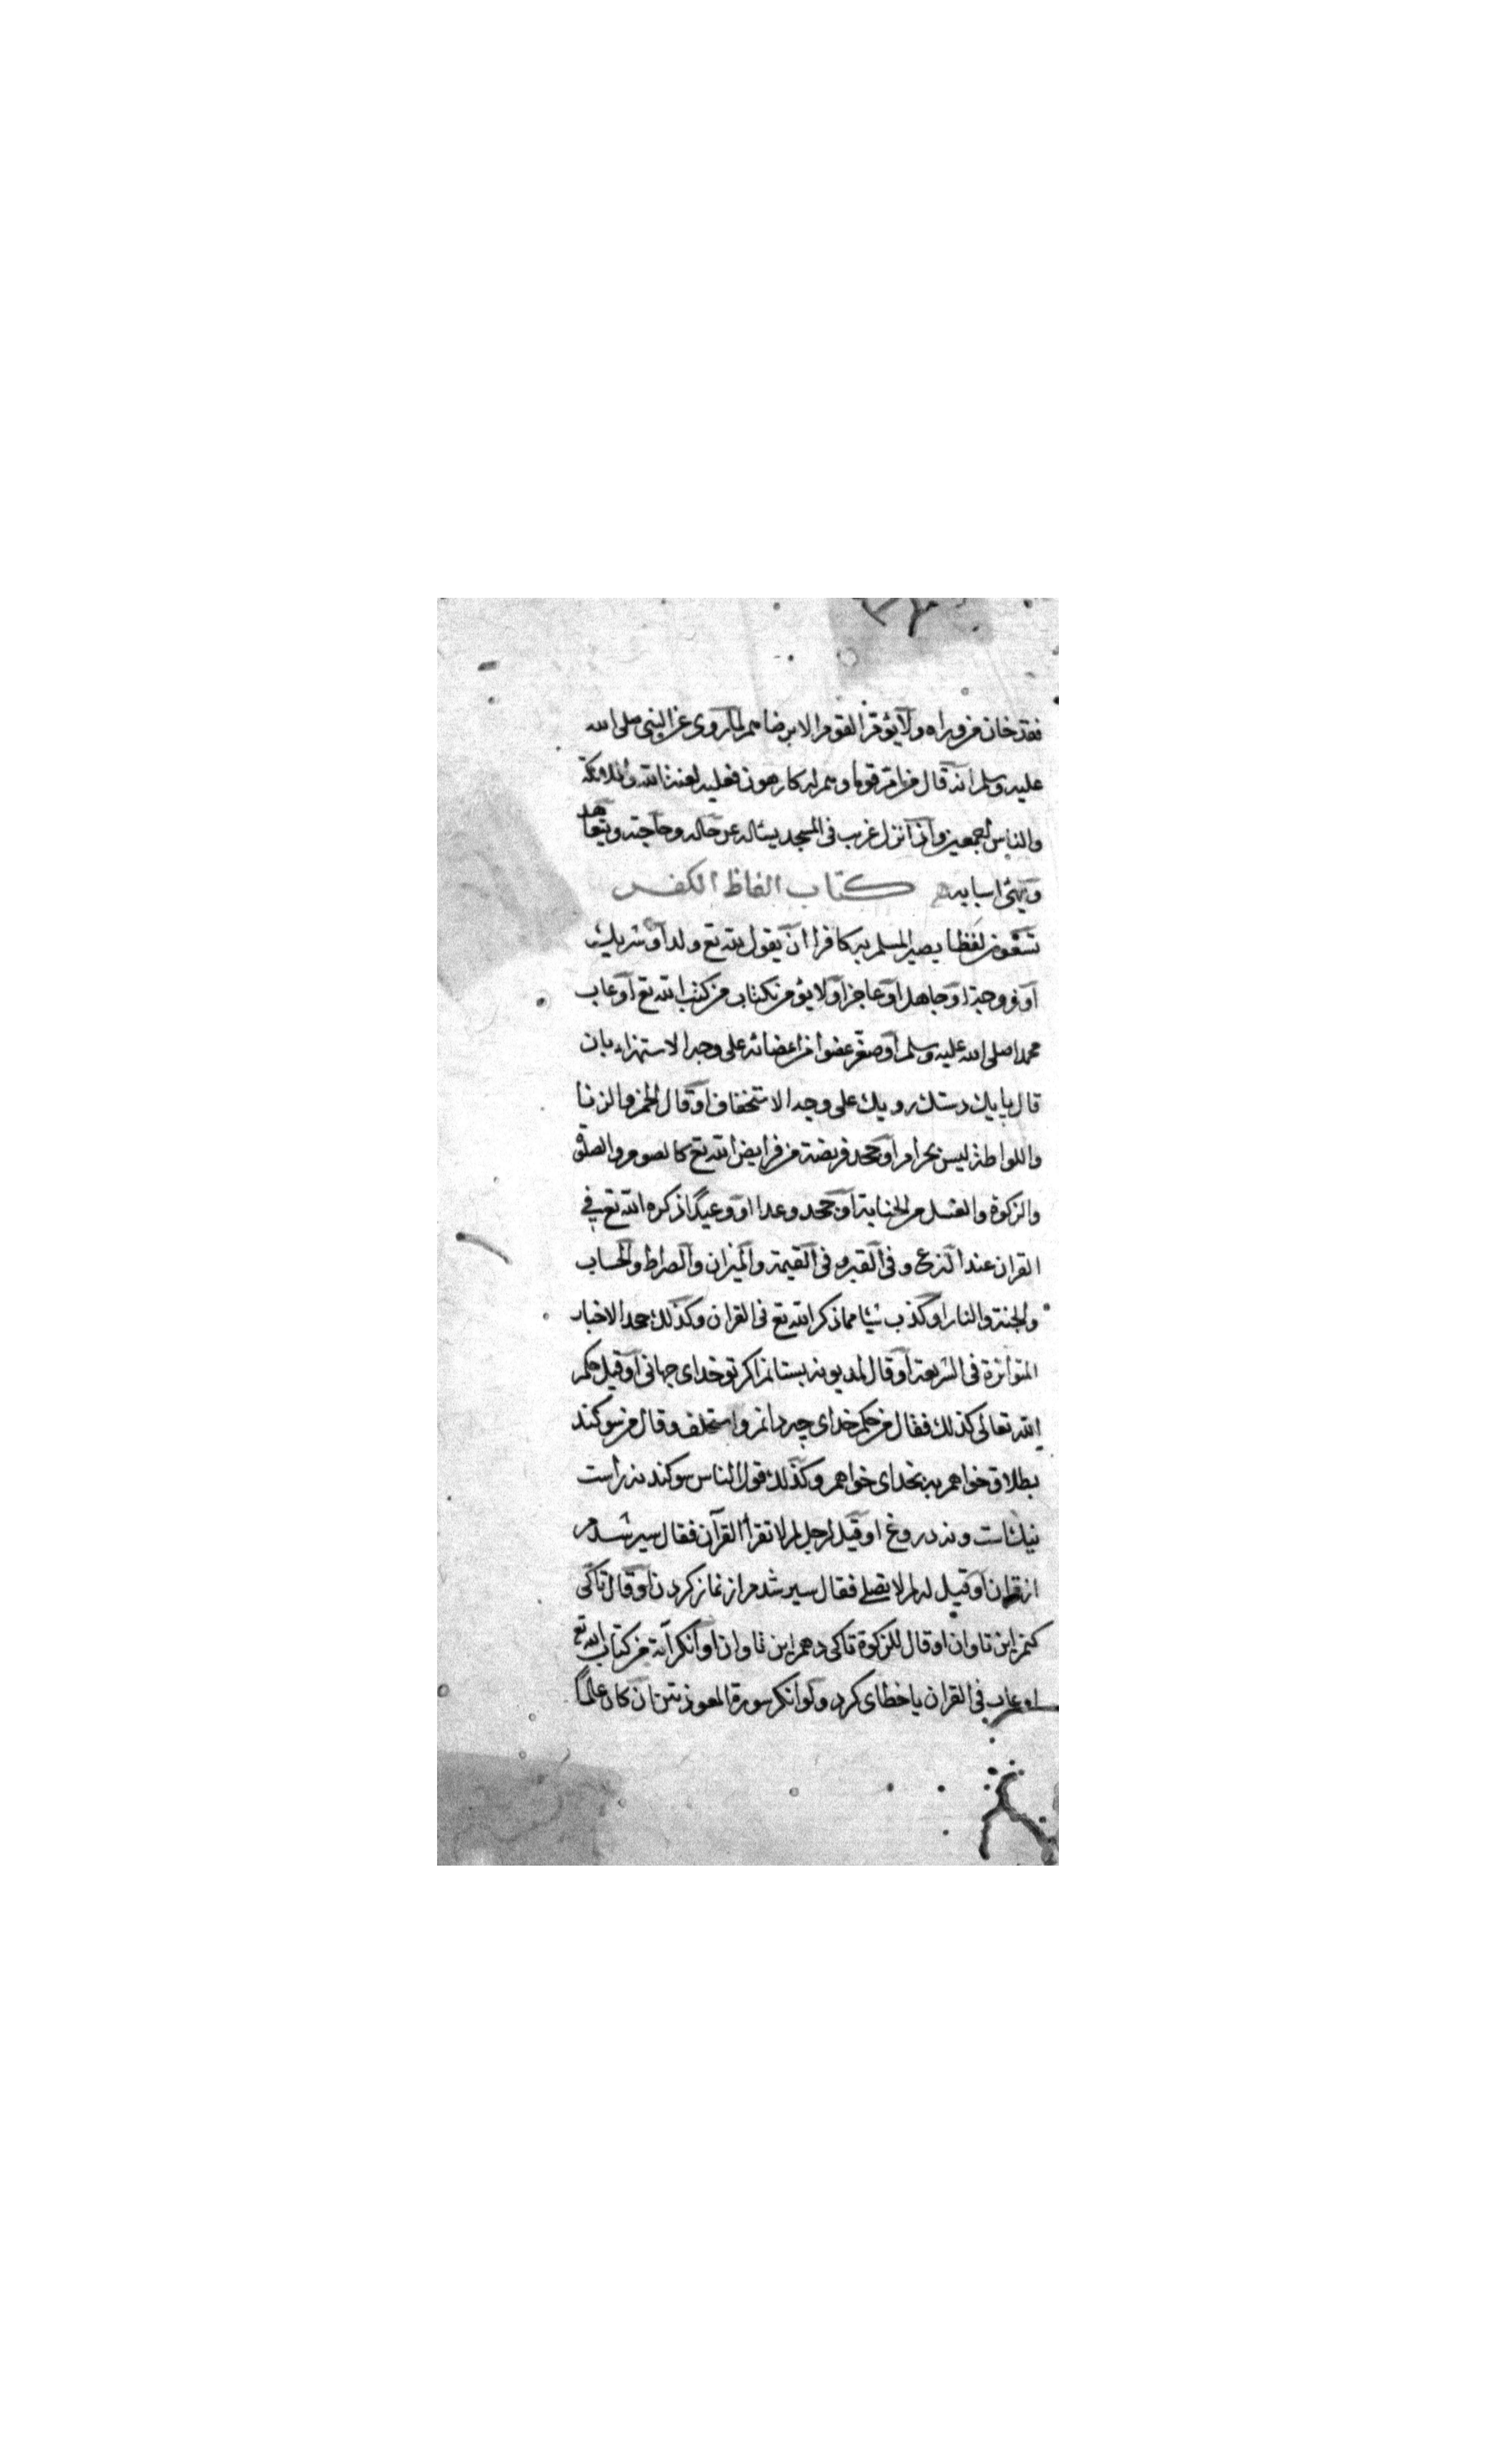 فقد خان من وراه ولا يؤم القوم الا برضاهم لما روى عن النبى صلى الله
عليه وسلم انه قال من ام قوما وهم له كارهون فعليه لعنة الله والملائكة
والناس اجمعين واذا نزل غريب فى المسجد يسأله عن حاله وحاجته ويتعاهد
ويهئ اسبابه كتاب الفاظ الكفر
تسعون لفظا يصير المسلم به كافرا ان يقول لله تع ولدا او شريك
او زوجة او جاهل او عاجز او لا يؤمن بكتاب من كتب الله تع او عاب
محمدا صلى الله عليه وسلم او صغر عضوا من اعضائه على وجه الاستهزاء بان
قال پايك دستك رويك على وجه الاستخفاف او قال الخمر والزنا
واللواطة ليس بحرام او جحد فريضة من فرايض الله تع كالصوم والصلوة
والزكوة والغسل من الجنابة او جحد وعدا او وعيدا ذكره الله تع فى
القران عند النزع وفى القبر وفى القيمة والميزان والصراط والحساب
والجنة والنار او كذب شيئا مما ذكر الله تع فى القران وكذلك جحد الاخبار
المتواترة فى الشريعة او قال لمديونه بستانم اكر تو خداى جهانى او قيل حكم
الله تعالى كذلك فقال من حكم خداى چه دانم واستحلف وقال من سوكند
بطلاق خواهم نه بخداى خواهم وكذلك قول الناس سوكند نه راست
نيك است ونه دروغ او قيل لرجل لم لا تقرأ القرآن فقال سير شدم
از قران او قيل له لم لا يصلى فقال سير شدم از نماز كردن او قال تاكى
كنم اين تاوان او قال للزكوة تاكى دهم اين تاوان او انكر آية من كتاب الله تع
او عاب فى القران يا خطاى كرد ولو انكر سورة المعوذتين ان كان عالما